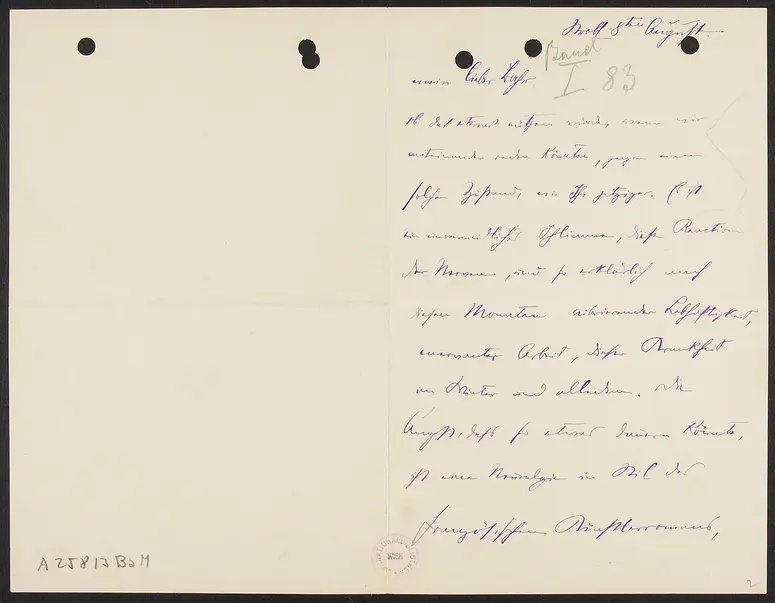 Strobl 8ten August.
Band
I 83
mein lieber Bahr
ob das etwas nützen würde, wenn wir
miteinander reden könnten, gegen einen
solchen Zustand, wie Ihr jetziger. Es ist
ein unvermeidliches Schlimme, diese Reaction
der Nerven, und so erklärlich nach
diesen Monaten vibrierender Lebhaftigkeit,
enervanter Arbeit, dieser Krankheit
im Winter und alledem. Die
Angst, dass so etwas dauern könnte,
ist eine Neuralgie im Stil des
französischen Künstlerromans,
A 25813 BaM
NATIONALBIBLIOTHEK WIEN
2